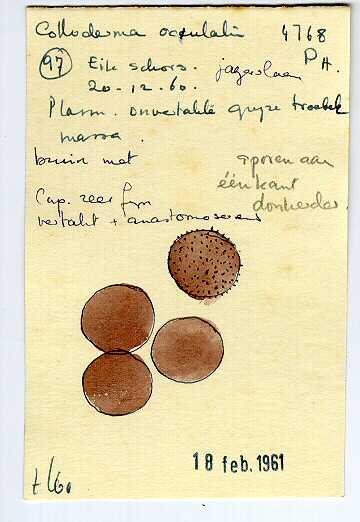 Colloderma oculata 4768
97 Eik schors. jagerslaan PH.
20-12-60.
Plasm. onvertakte grijze troebele
massa.
bruin met
sporen aan
één kant
donkerder.
Cap. zeer fijn
vertakt + anastomoserend
18 feb. 1961